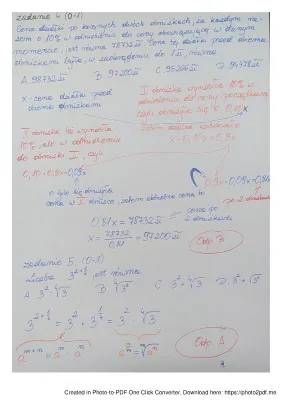 Zadanie 4 (0-1)
Cena działki po kolejnych dwóch obniżkach, za każdym ra-
zem o 10% w odniesieniu do ceny obowiązującej w danym
momencie, jest równa 78732 zł. Cena tej działki przed obiema
obniżkami była, w zaokrągleniu do 1 zł, równa
A 98732 zł B 97200 zł C. 95266 zł D. 94478 zł
x - cena działki przed
dwoma obniżkami
I obniżka wynosiła 10% w
odniesieniu do ceny początkowej
czyli obniżyła się o 0,10x
x - 0,10x = 0,9x
II obniżka też wynosiła
10%, ale w odniesieniu
do obniżki I, czyli
0,10 · 0,9x = 0,09x
0,9x - 0,09x = 0,81x
po 2 obniżkach
o tyle się obniżyła
0,81x = 78732 zł
cena po
2 obniżkach
x = 78732 / 0,81 = 97200 zł
Odp. B
Zadanie 5. (0-1)
Liczba 3^{2+1/4} jest równa
A 3² · ⁴√3 B ⁴√3² C 3² + ⁴√3 D. 3² + √3⁴
3^{2+1/4} = 3² · 3^{1/4} = 3² · ⁴√3
Odp. A
a^{m+n} = a^m · a^n
Created in Photo to PDF One Click Converter. Download here: https://photo2pdf.me